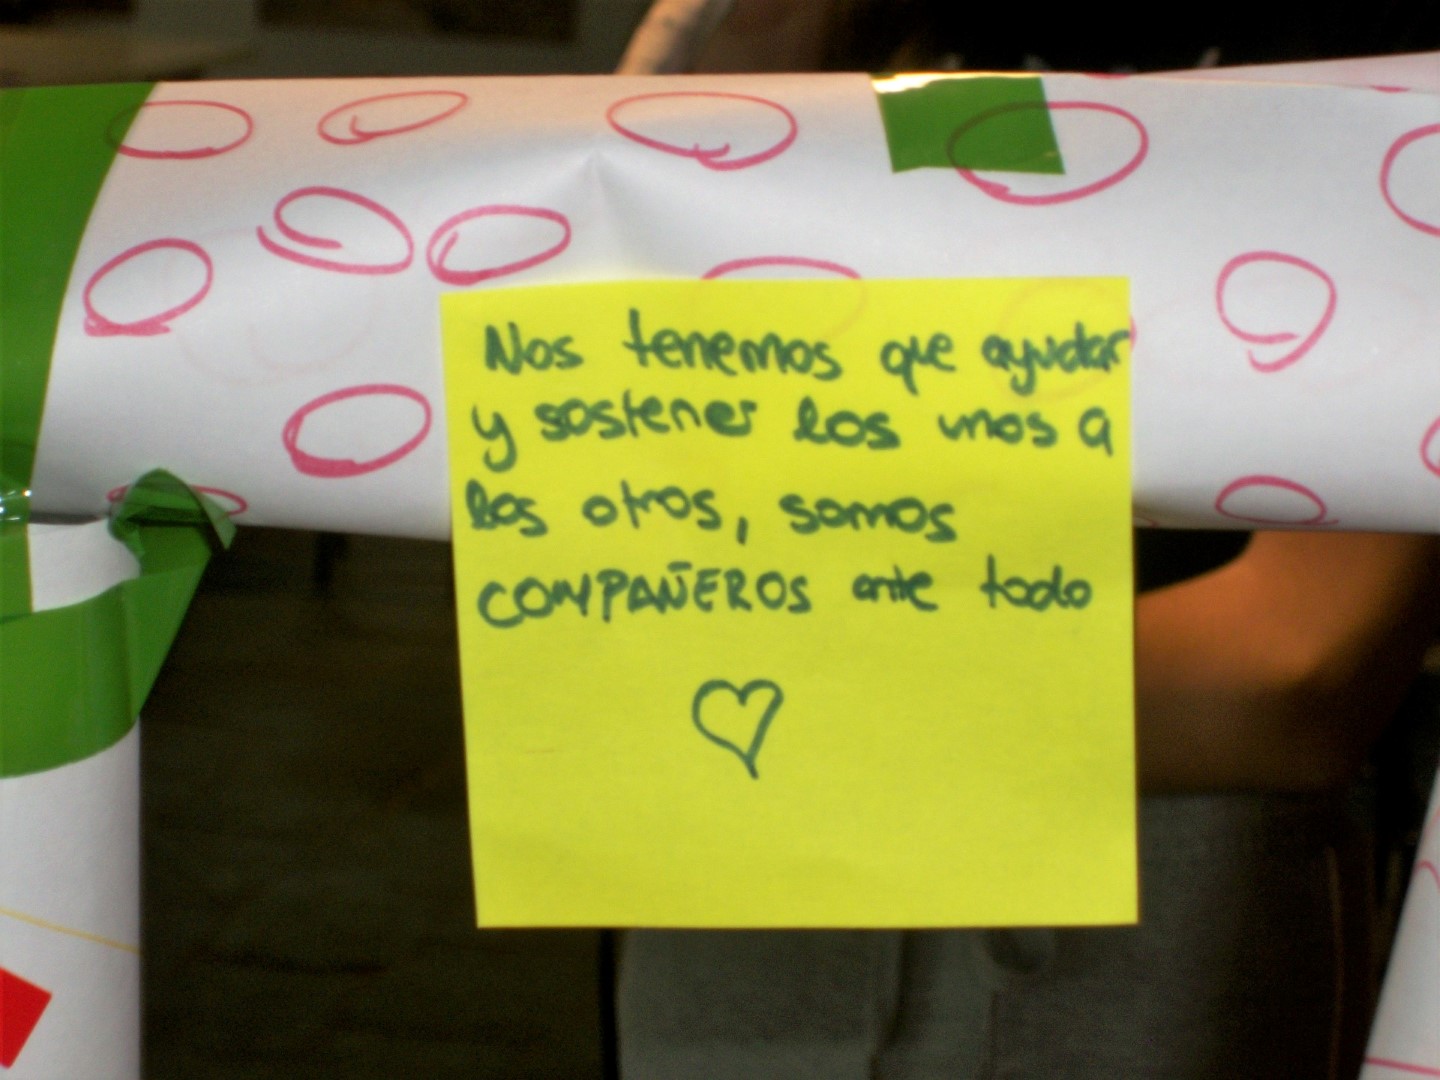 Nos tenemos que ayudar
y sostener los unos a
los otros, somos
COMPAÑEROS ante todo